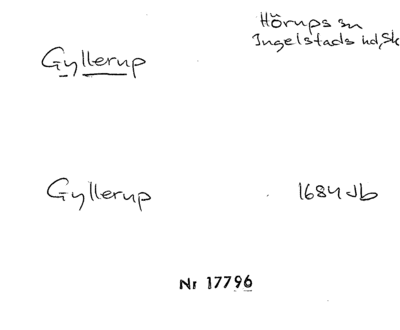 Hörups sn
Ingelstads hd, Sk
Gyllerup
Gyllerup 1684 Jb
Nr 17796